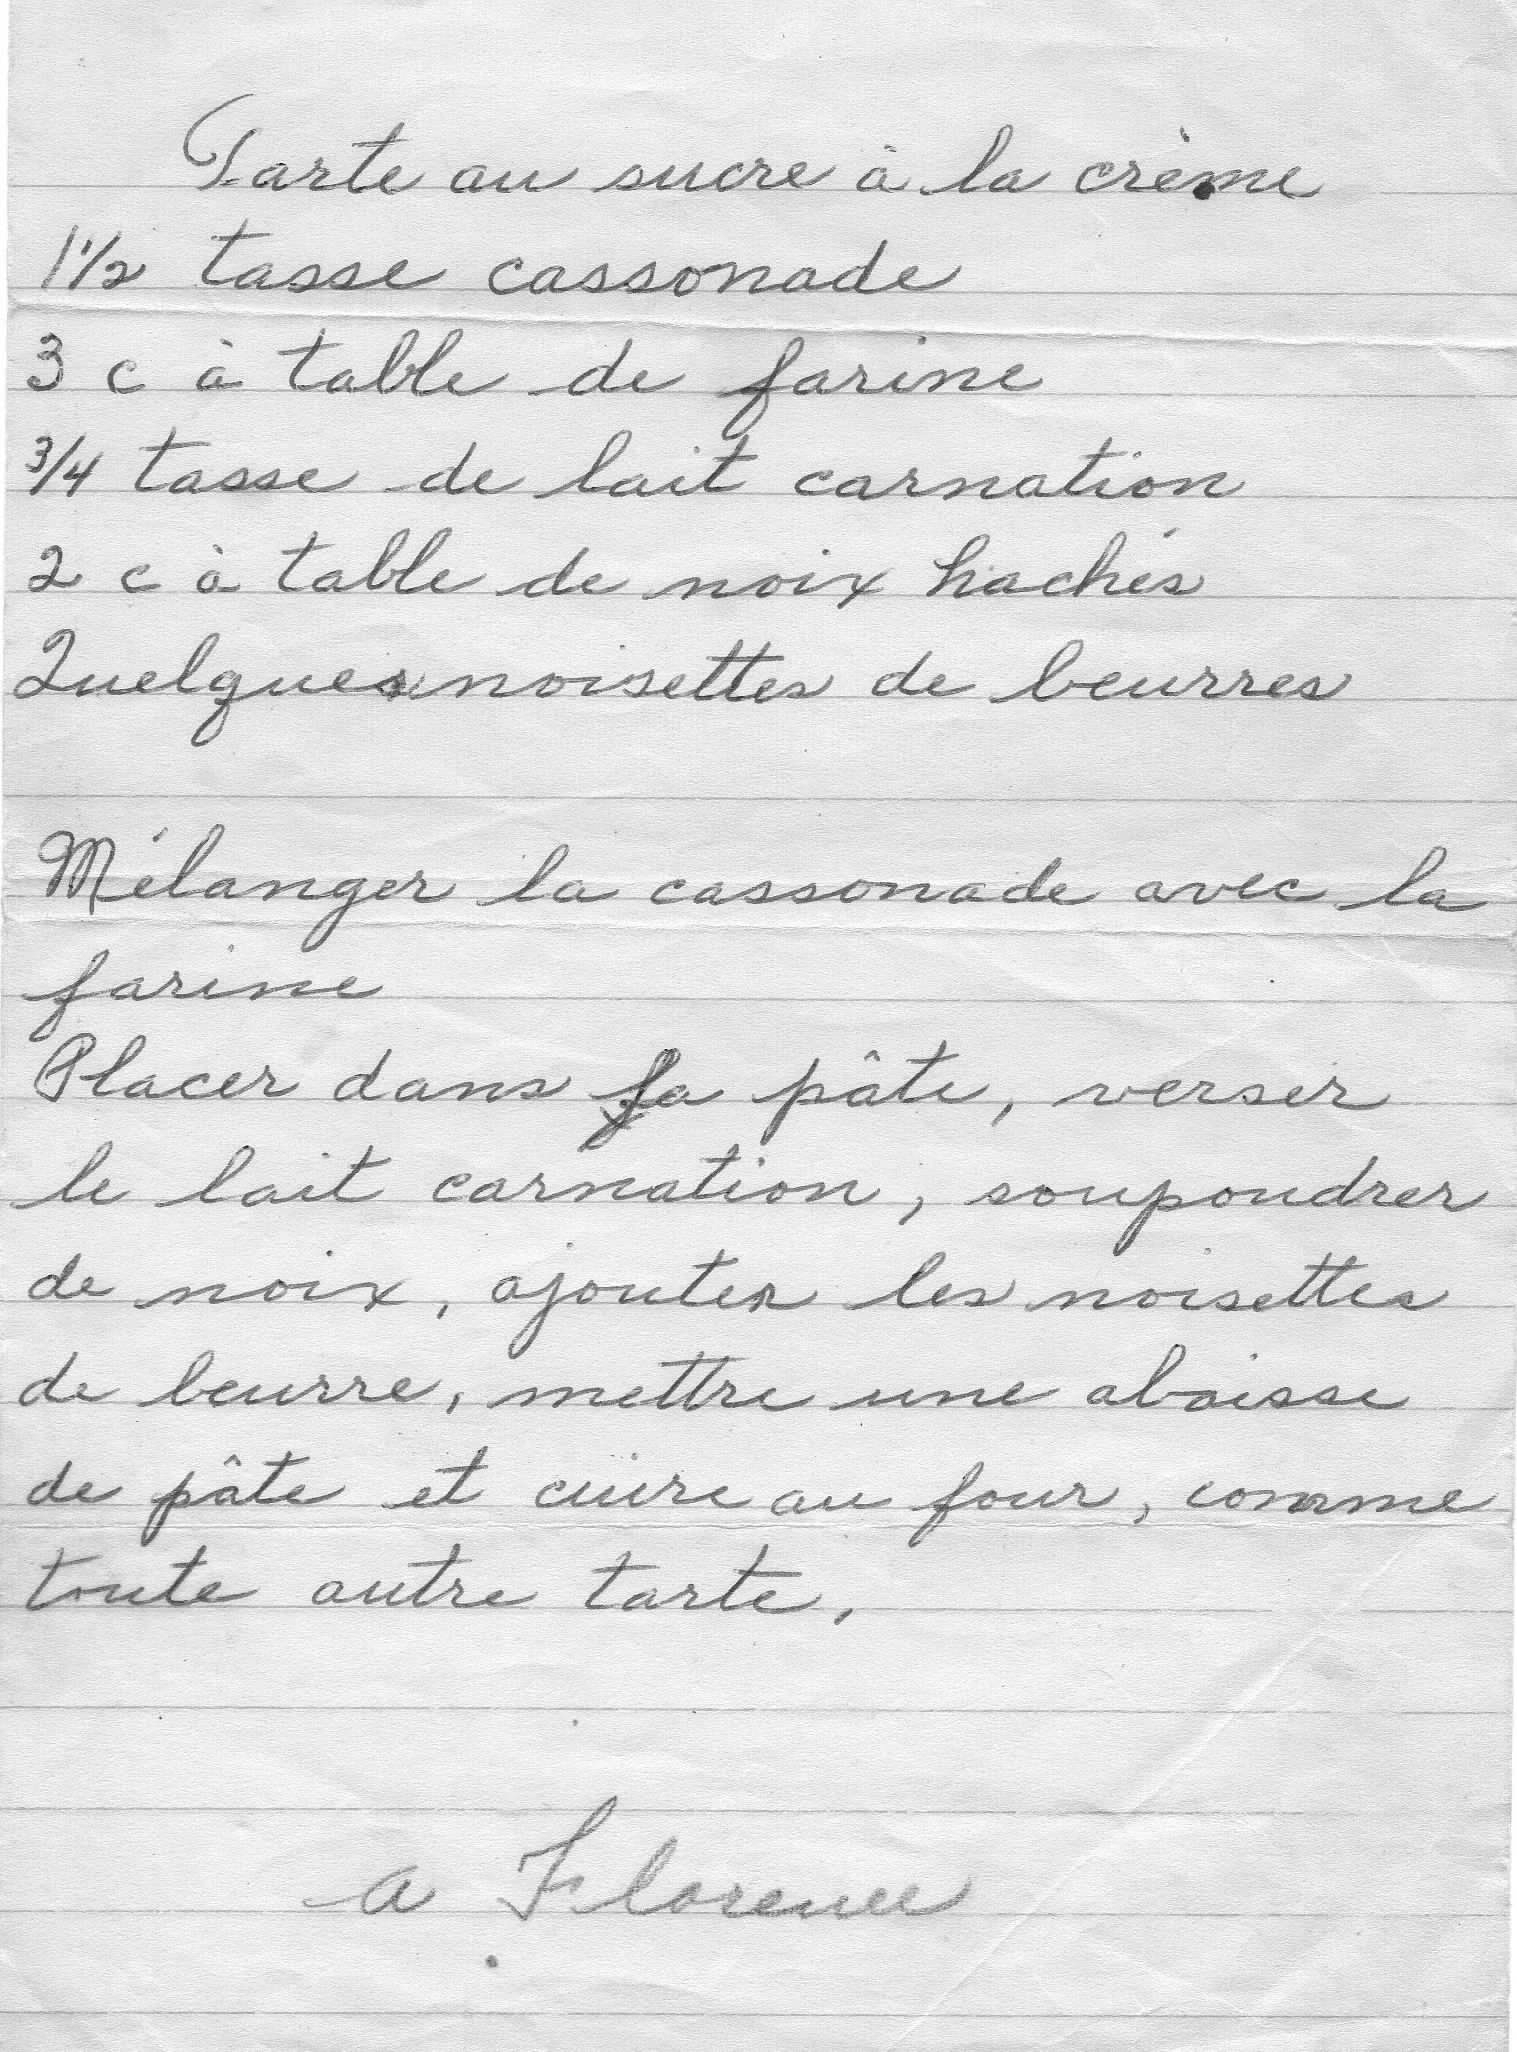 Tarte au sucre à la crème
1 1/2 tasse cassonade
3 c à table de farine
3/4 tasse de lait carnation
2 c à table de noix hachés
Quelques noisettes de beurres
Mélanger la cassonade avec la
farine
Placer dans la pâte, verser
le lait carnation, soupoudrer
de noix, ajouter les noisettes
de beurre, mettre une abaisse
de pâte et cuire au four, comme
toute autre tarte.
a Florence